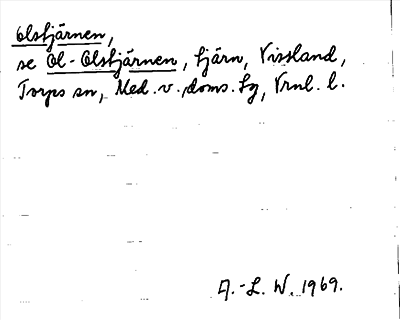 Olstjärnen,
se Ol-Olstjärnen, tjärn, Vissland,
Torps sn, Med. v. doms. tg, Vrnl. l.
A.-L. W. 1969.